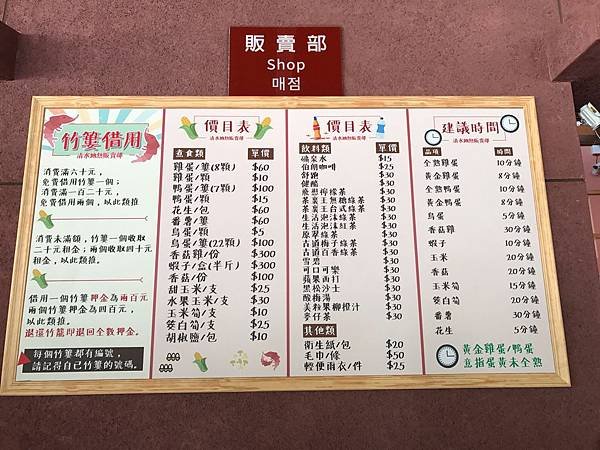 販賣部
Shop
매점
竹簍借用
清水地熱販賣部
消費滿六十元，
免費借用竹簍一個；
消費滿一百二十元，
免費借用兩個，以此類推
消費未滿額，竹簍一個收取
二十元租金；兩個收取四十元
租金，以此類推。
借用一個竹簍押金為兩百元
兩個竹簍押金為四百元，
以此類推。
退還竹籠即退回全數押金。
每個竹簍都有編號，
請記得自己竹簍的號碼。
價目表
清水地熱販賣部
煮食類 單價
雞蛋/簍(8顆) $60
雞蛋/顆 $10
鴨蛋/簍(7顆) $100
鴨蛋/顆 $15
花生/包 $60
番薯/簍 $60
鳥蛋/顆 $5
鳥蛋/簍(22顆) $100
香菇雞/份 $300
蝦子/盒(半斤) $300
香菇/份 $100
甜玉米/支 $25
水果玉米/支 $30
玉米筍/支 $10
筊白筍/支 $25
胡椒鹽/包 $10
價目表
清水地熱販賣部
飲料類 單價
礦泉水 $15
伯朗咖啡 $25
舒跑 $30
健酪 $30
飛想檸檬茶 $30
茶裏王無糖綠茶 $30
茶裏王台式綠茶 $30
生活泡沫綠茶 $30
生活泡沫紅茶 $30
原萃綠茶 $30
古道梅子綠茶 $30
古道百香綠茶 $30
雪碧 $30
可口可樂 $30
蘋果西打 $30
黑松沙士 $30
酸梅湯 $30
美粒果柳橙汁 $30
麥仔茶 $30
其他類
衛生紙/包 $20
毛巾/條 $50
輕便雨衣/件 $25
建議時間
清水地熱販賣部
品項 時間
全熟雞蛋 10分鐘
黃金雞蛋 8分鐘
全熟鴨蛋 10分鐘
黃金鴨蛋 8分鐘
鳥蛋 5分鐘
香菇雞 30分鐘
蝦子 10分鐘
玉米 20分鐘
香菇 20分鐘
玉米筍 15分鐘
筊白筍 20分鐘
番薯 30分鐘
花生 5分鐘
黃金雞蛋/鴨蛋
意指蛋黃未全熟